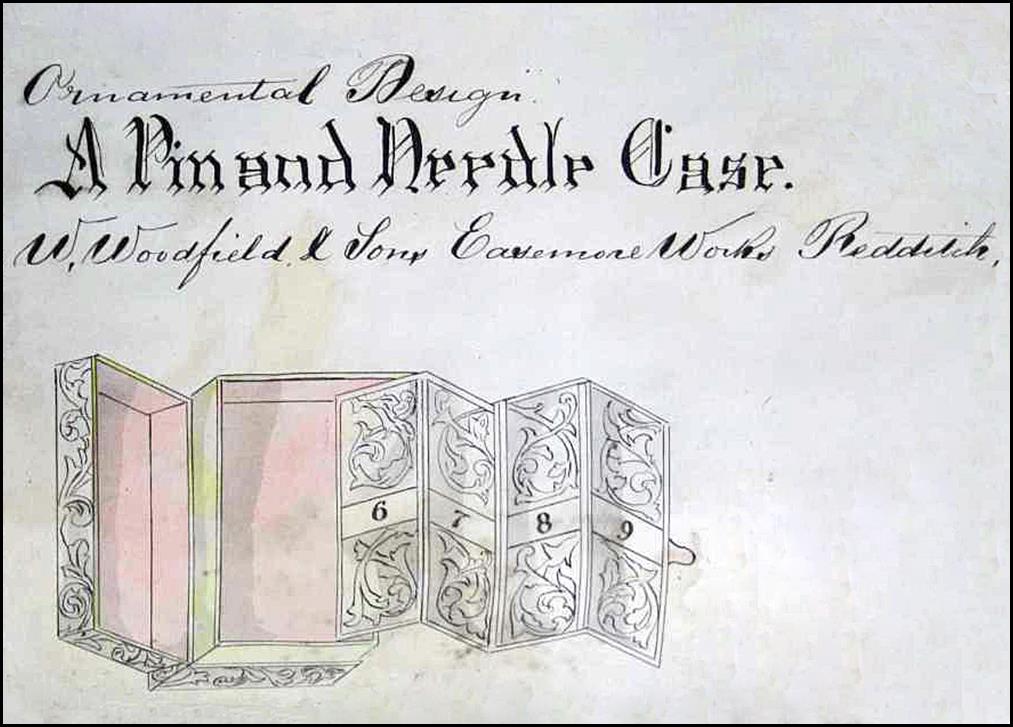 Ornamental Design.
A Pin and Needle Case.
W. Woodfield & Sons Easemore Works Redditch,
6 7 8 9